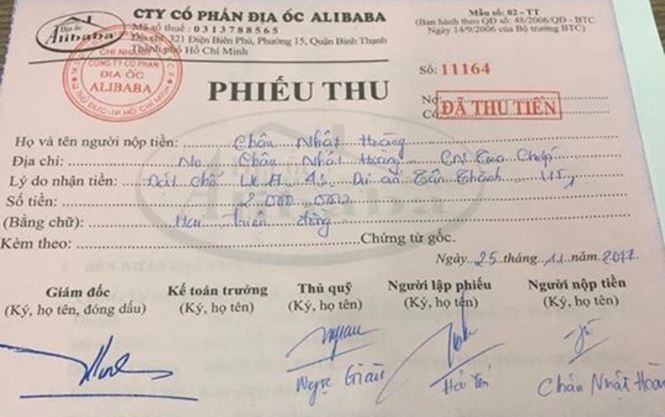 Địa ốc
Alibaba
CTY CỔ PHẦN ĐỊA ỐC ALIBABA
Mã số thuế : 0313788565
Địa chỉ: 321 Điện Biên Phủ, Phường 15, Quận Bình Thạnh
Thành phố Hồ Chí Minh
Mẫu số: 02 - TT
(Ban hành theo QĐ số: 48/2006/QĐ - BTC
Ngày 14/9/2006 của Bộ trưởng BTC)
CHI NHÁNH
CÔNG TY CỔ PHẦN
ĐỊA ỐC
ALIBABA
PHIẾU THU
Số: 11164
ĐÃ THU TIỀN
Họ và tên người nộp tiền: Châu Nhật Hoàng
Địa chỉ: Châu Nhật Hoàng
Lý do nhận tiền: Đặt chỗ Dự án Tân Thành
Số tiền: 2.000.000
(Bằng chữ): Hai triệu đồng
Kèm theo: Chứng từ gốc.
Ngày 25 tháng 11 năm 2017
Giám đốc Kế toán trưởng Thủ quỹ Người lập phiếu Người nộp tiền
(Ký, họ tên, đóng dấu) (Ký, họ tên) (Ký, họ tên) (Ký, họ tên) (Ký, họ tên)
Ngọc Giàu Hải Yến Châu Nhật Hoàng